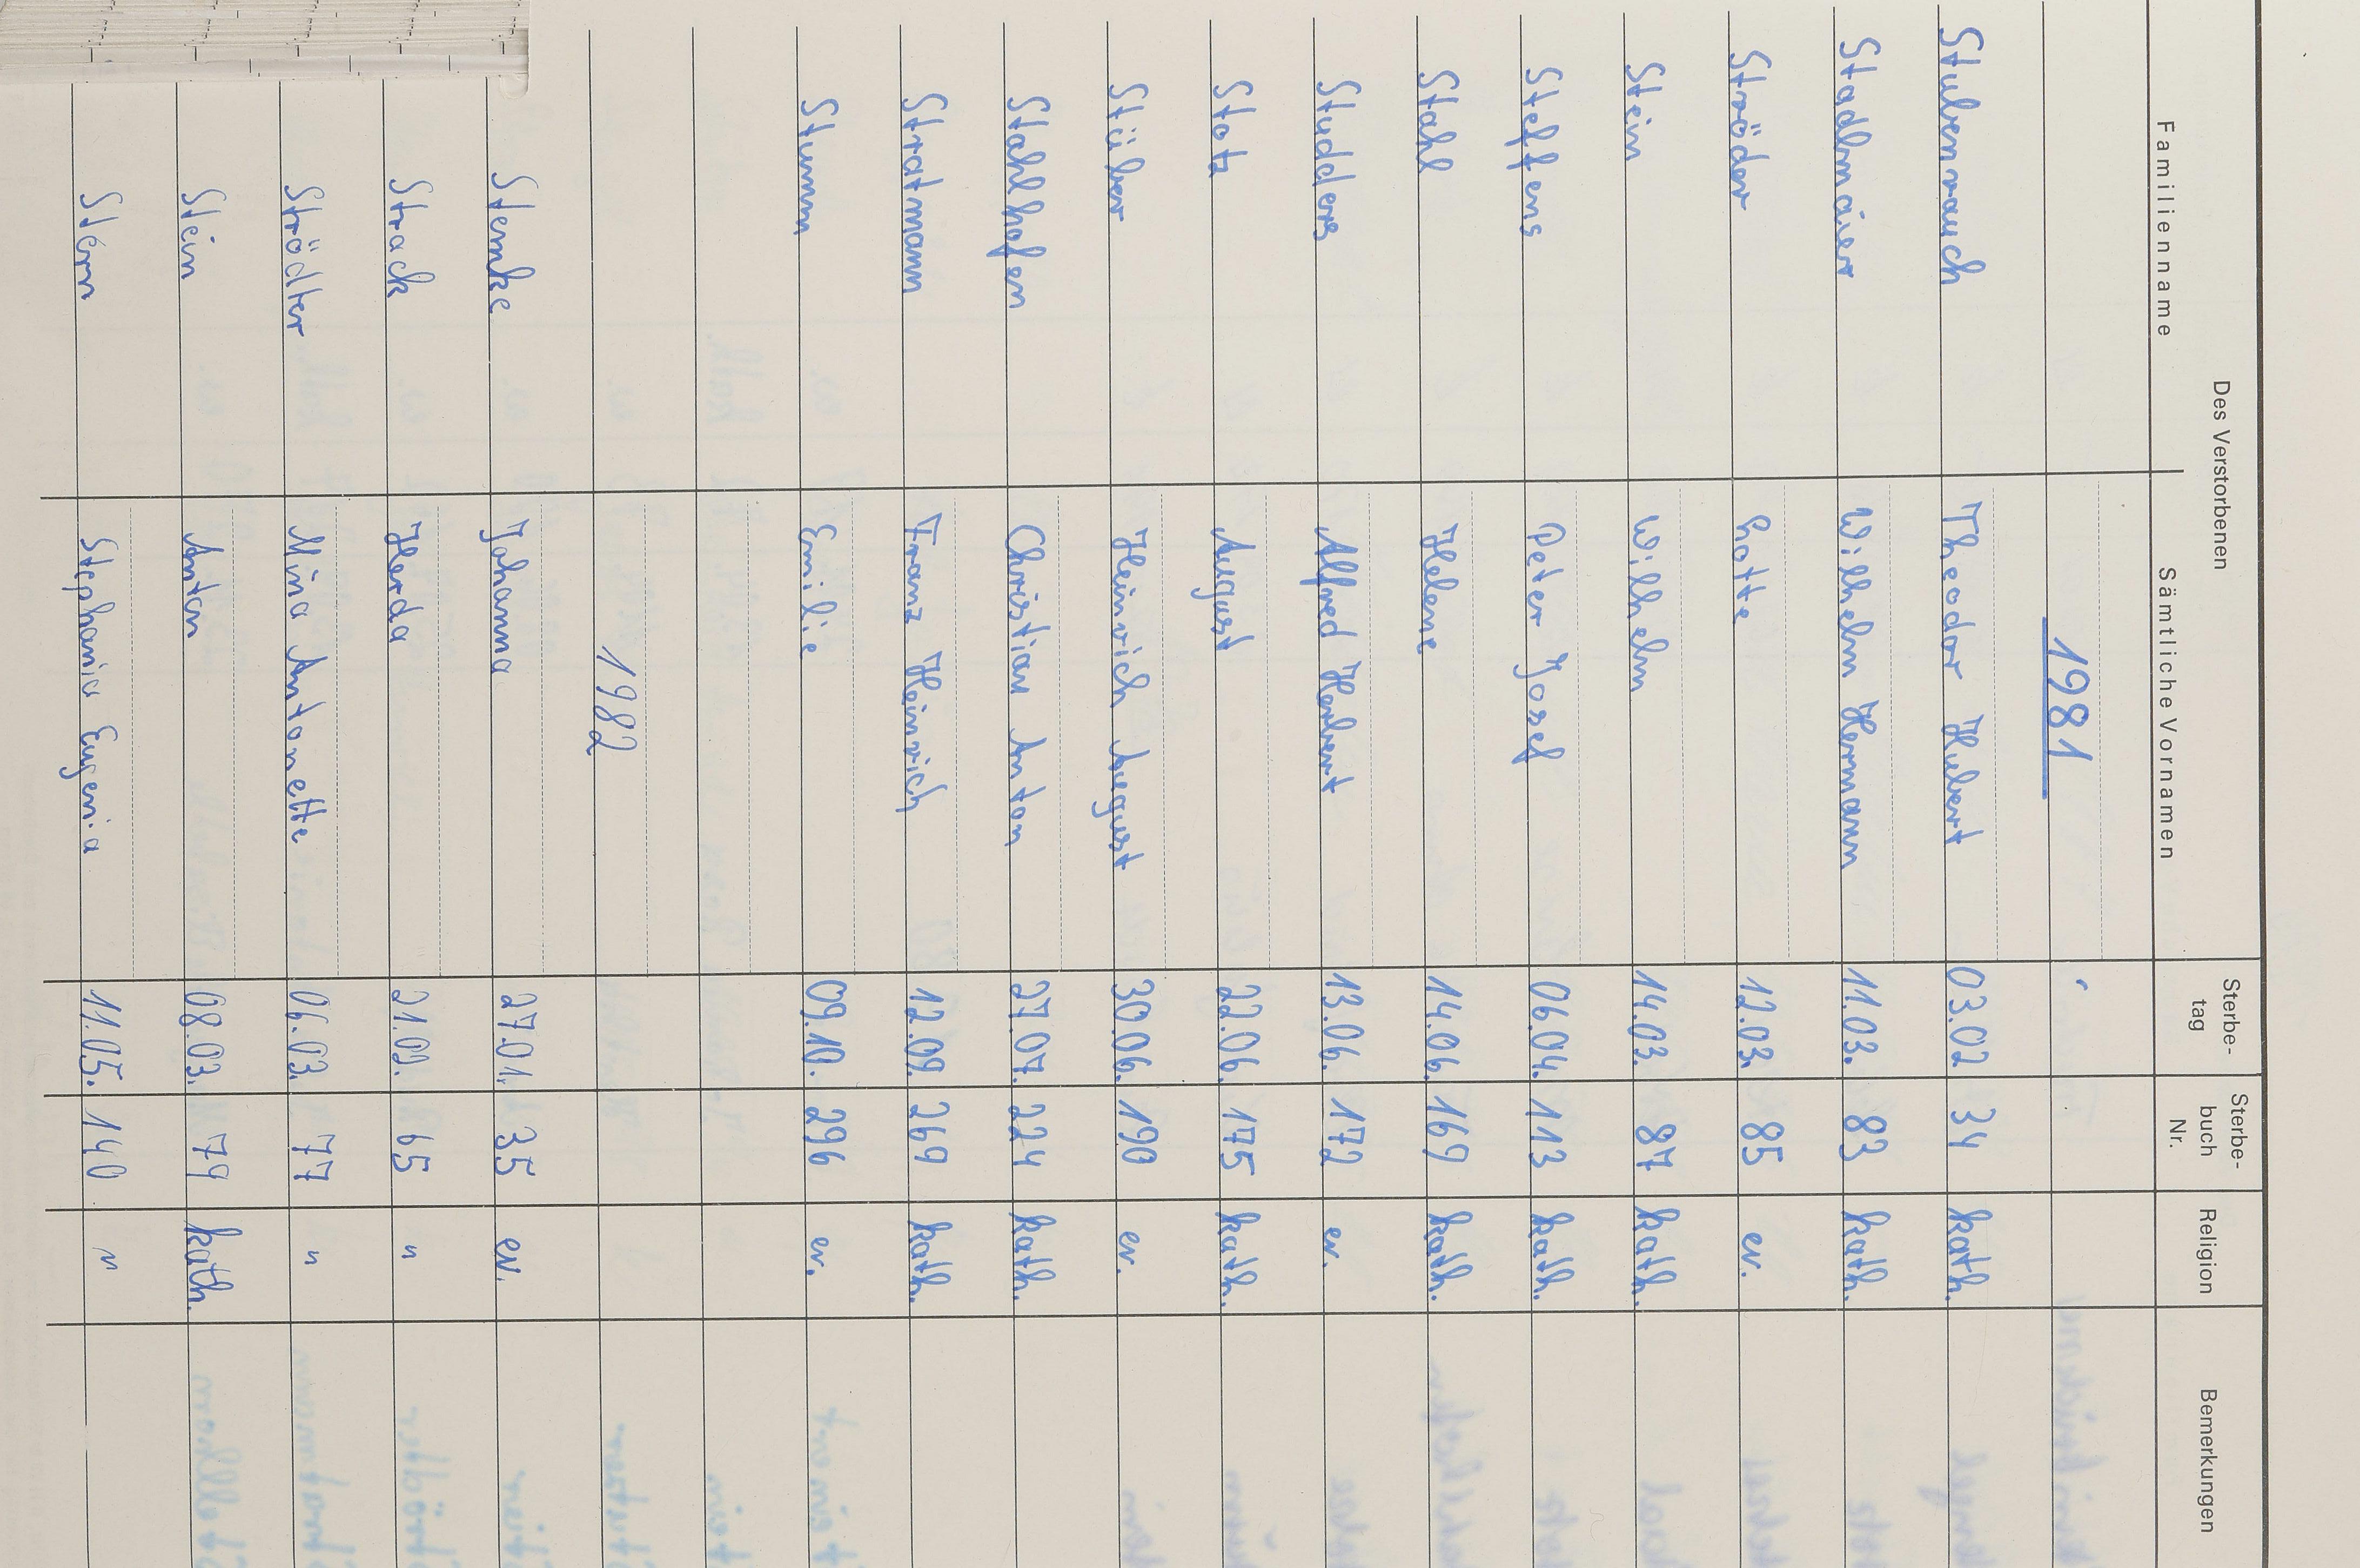 Des Verstorbenen
Familienname Sämtliche Vornamen Sterbe-tag Sterbe-buch Nr. Religion Bemerkungen
1981
Stubenrauch Theodor Hubert 03.02 34 kath.
Stadlmaier Wilhelm Hermann 11.03. 83 kath.
Ströder Lotte 12.03. 85 ev.
Stein Wilhelm 14.03. 87 kath.
Steffens Peter Josef 06.04. 113 kath.
Stahl Helene 14.06. 169 kath.
Studders Alfred Herbert 13.06. 172 ev.
Stotz August 22.06. 175 kath.
Stüber Heinrich August 30.06. 190 ev.
Stahlhofen Christian Anton 27.07. 224 kath.
Stratmann Franz Heinrich 12.09. 269 kath.
Stumm Emilie 09.10. 296 ev.
1982
Stemke Johanna 27.01. 35 ev.
Strack Herda 21.02. 65 "
Strödter Mina Antonette 06.03. 77 "
Stein Anton 08.03. 79 kath.
Stern Stephania Eugenia 11.05. 140 "